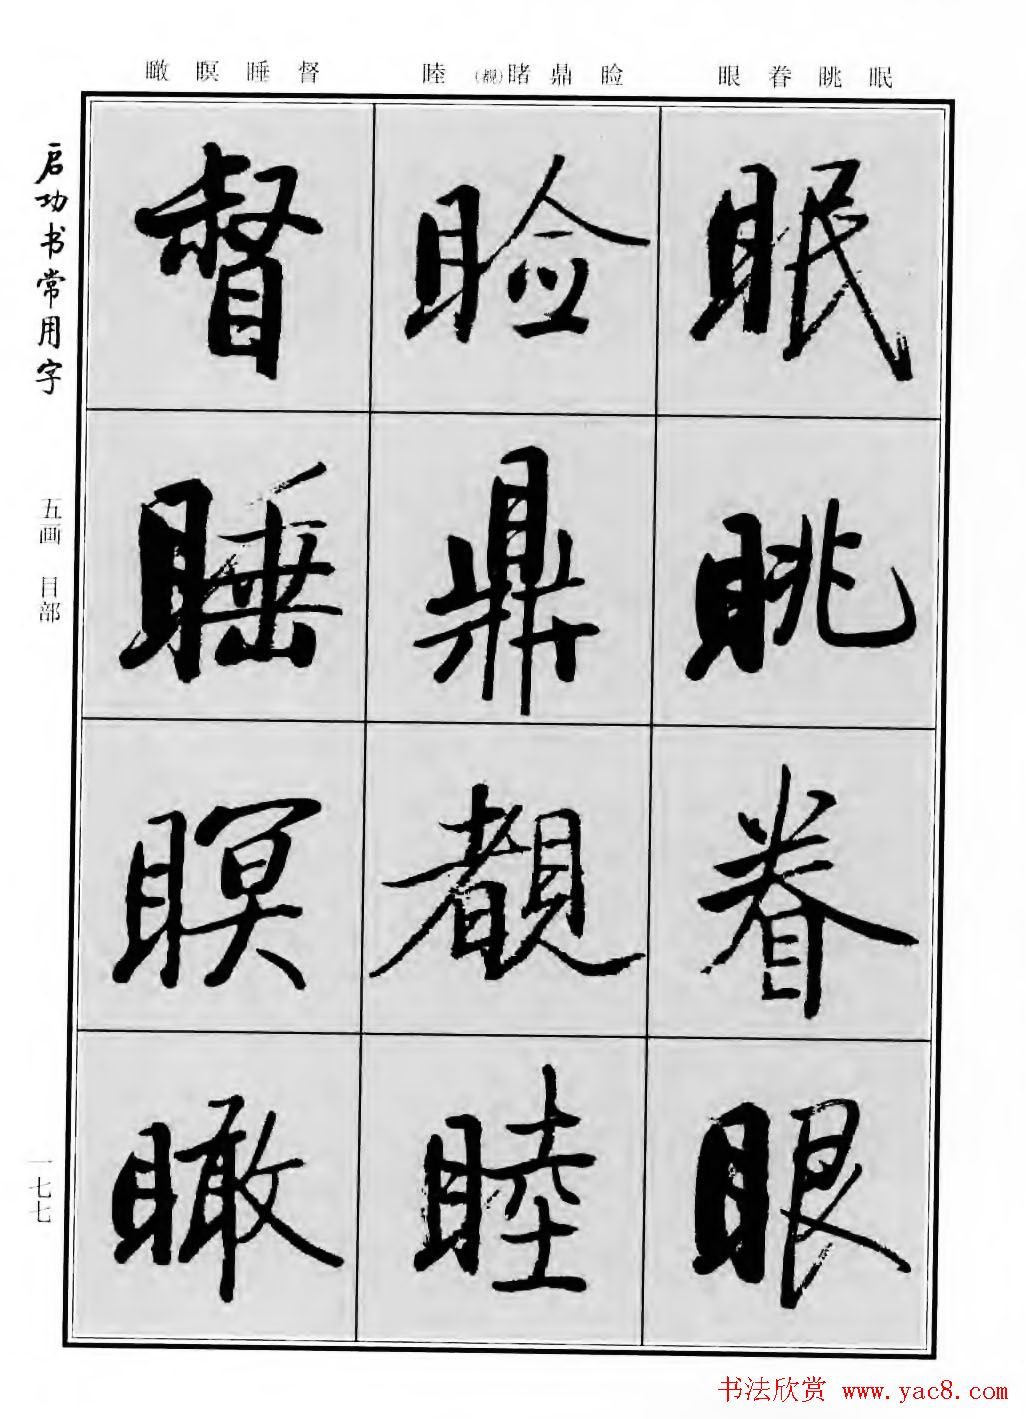 眠眺眷眼
睑鼎睹(覩)睦
督睡瞑瞰
启功书常用字
五画 目部
一七七
眠
眺
眷
眼
睑
鼎
覩
睦
督
睡
瞑
瞰
书法欣赏 www.yac8.com